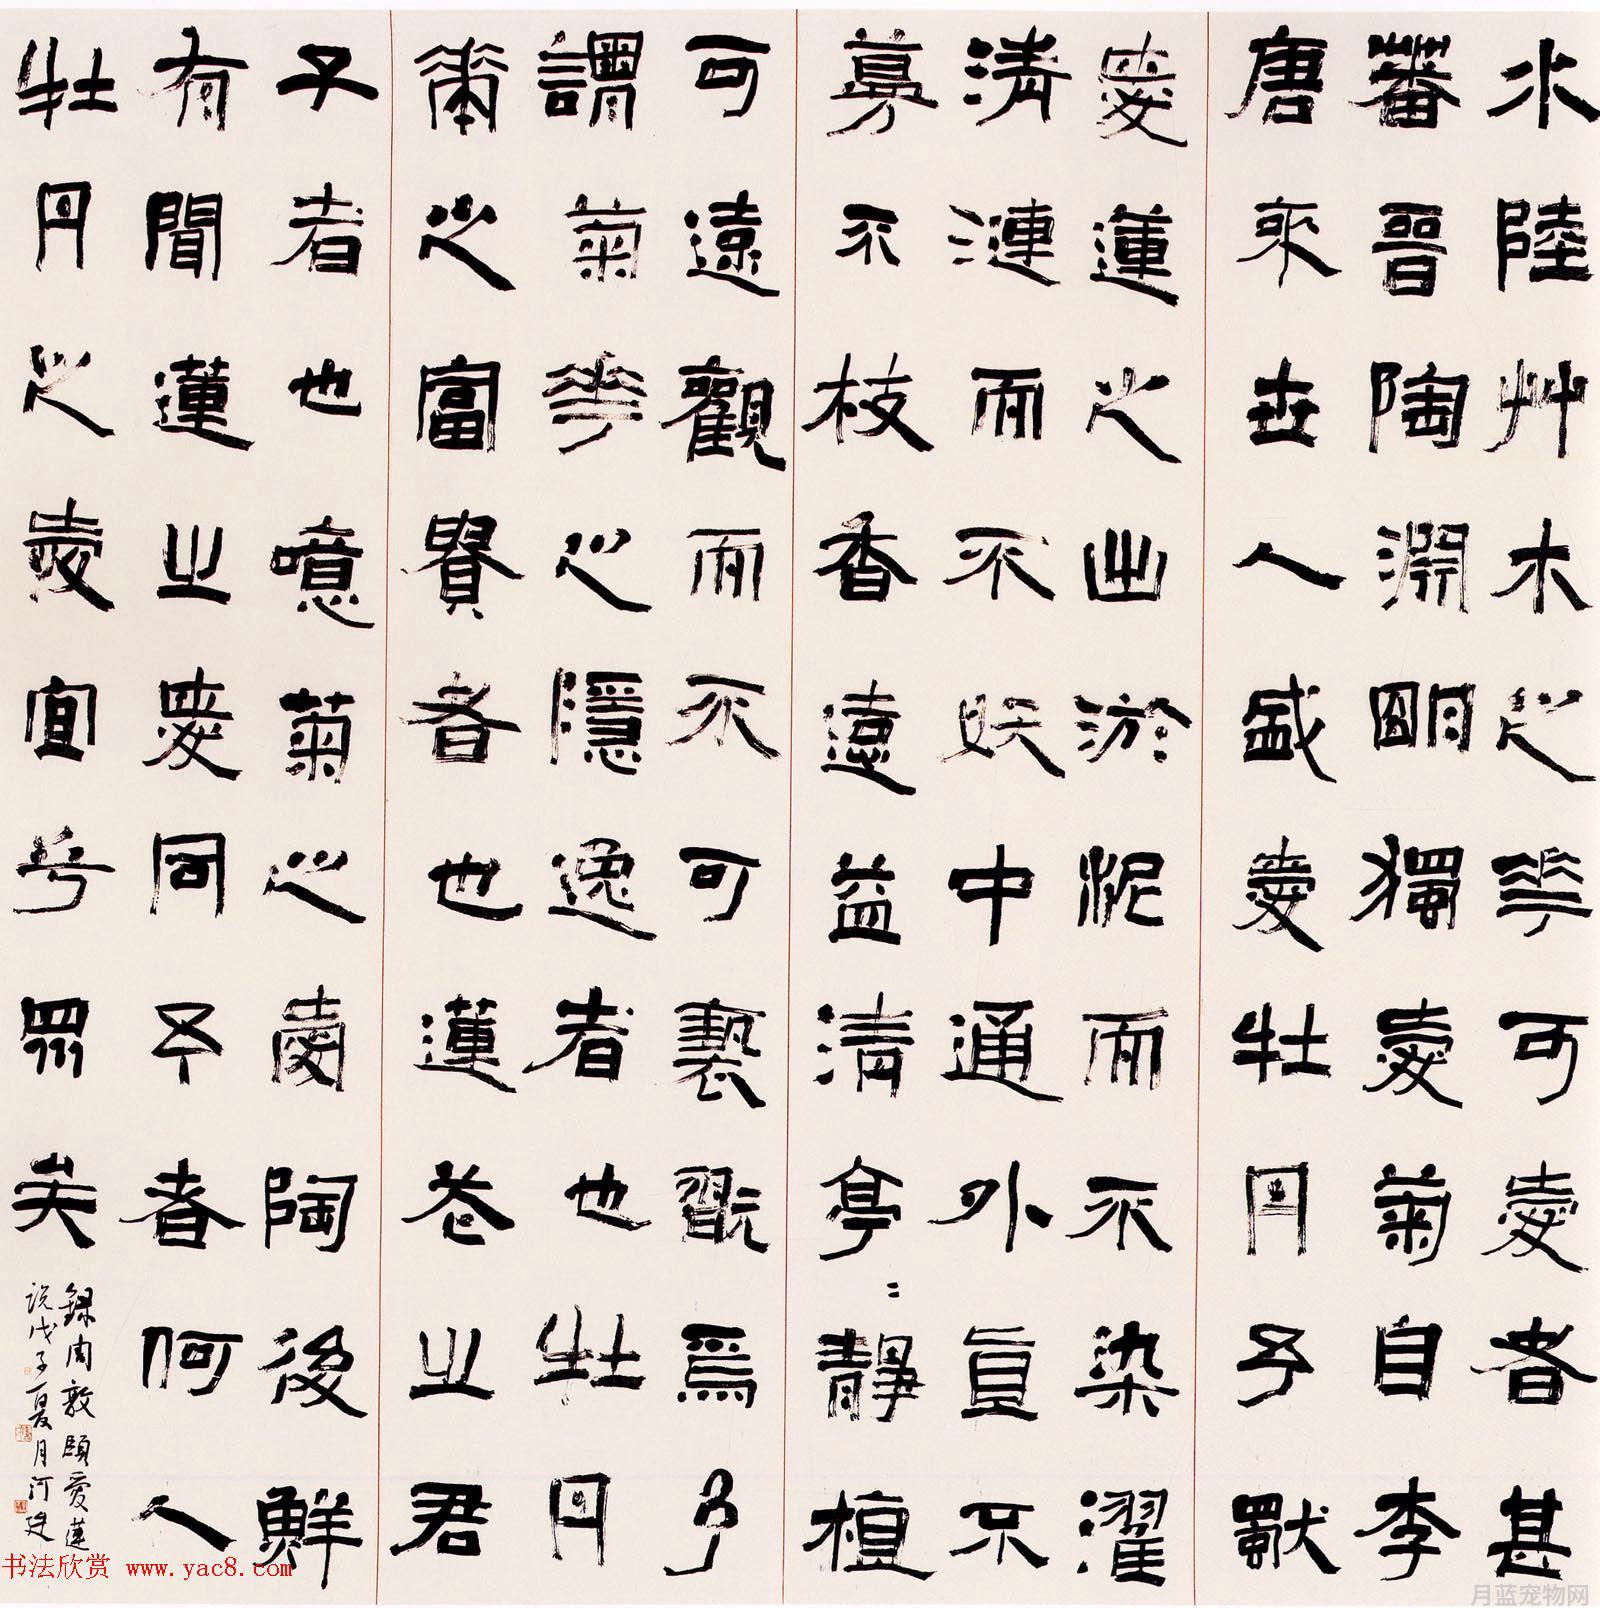 水陸艸木之花可愛者甚
蕃晉陶淵明獨愛菊自李
唐來世人盛愛牡丹予獨
愛蓮之出淤泥而不染濯
清漣而不妖中通外直不
蔓不枝香遠益清亭〻靜植
可遠觀而不可褻翫焉予
謂菊花之隱逸者也牡丹
華之富貴者也蓮花之君
子者也噫菊之愛陶後鮮
有聞蓮之愛同予者何人
牡丹之愛宜乎眾矣
錄周敦頤愛蓮
說戊子夏月
书法欣赏 www.yac8.com
月蓝宠物网